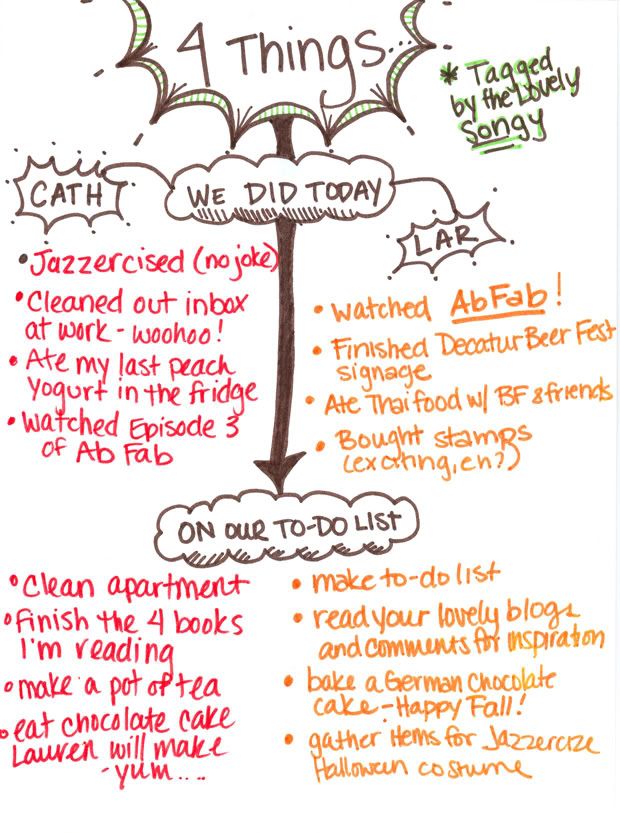 4 Things...
* Tagged
by the Lovely
Songy
WE DID TODAY
CATH
• Jazzercised (no joke)
• Cleaned out inbox
at work - woohoo!
• Ate my last peach
yogurt in the fridge
• Watched Episode 3
of Ab Fab
LAR
• watched AbFab!
• Finished Decatur Beer Fest
signage
• Ate Thai food w/ BF & friends
• Bought stamps
(exciting, eh?)
ON OUR TO-DO LIST
• Clean apartment
• Finish the 4 books
I'm reading
• make a pot of tea
• eat chocolate cake
Lauren will make
- yum....
• make to-do list
• read your lovely blogs
and comments for inspiration
• bake a German Chocolate
cake - Happy Fall!
• gather items for Jazzercize
Halloween costume